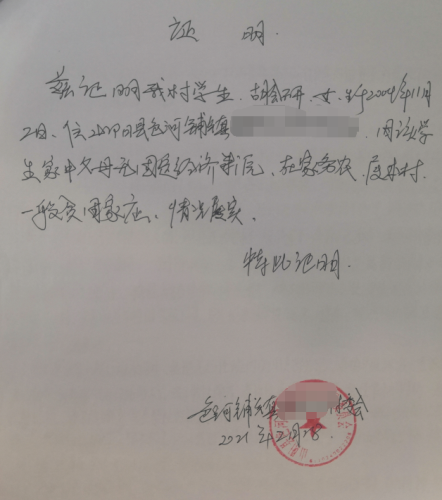 证 明
兹证明我村学生,胡晗研,女,生于2004年11月
2日,住 县包河铺镇 ,因该学
生家中父母无固定经济来源,在家务农,属本村
一般贫困家庭,情况属实。
特此证明.
包河铺镇 村委会
2021年2月28